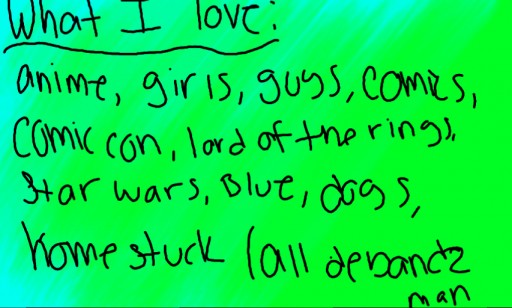 What I love:
anime, girls, guys, comics,
comic con, lord of the rings,
star wars, Blue, dogs,
homestuck (all
man